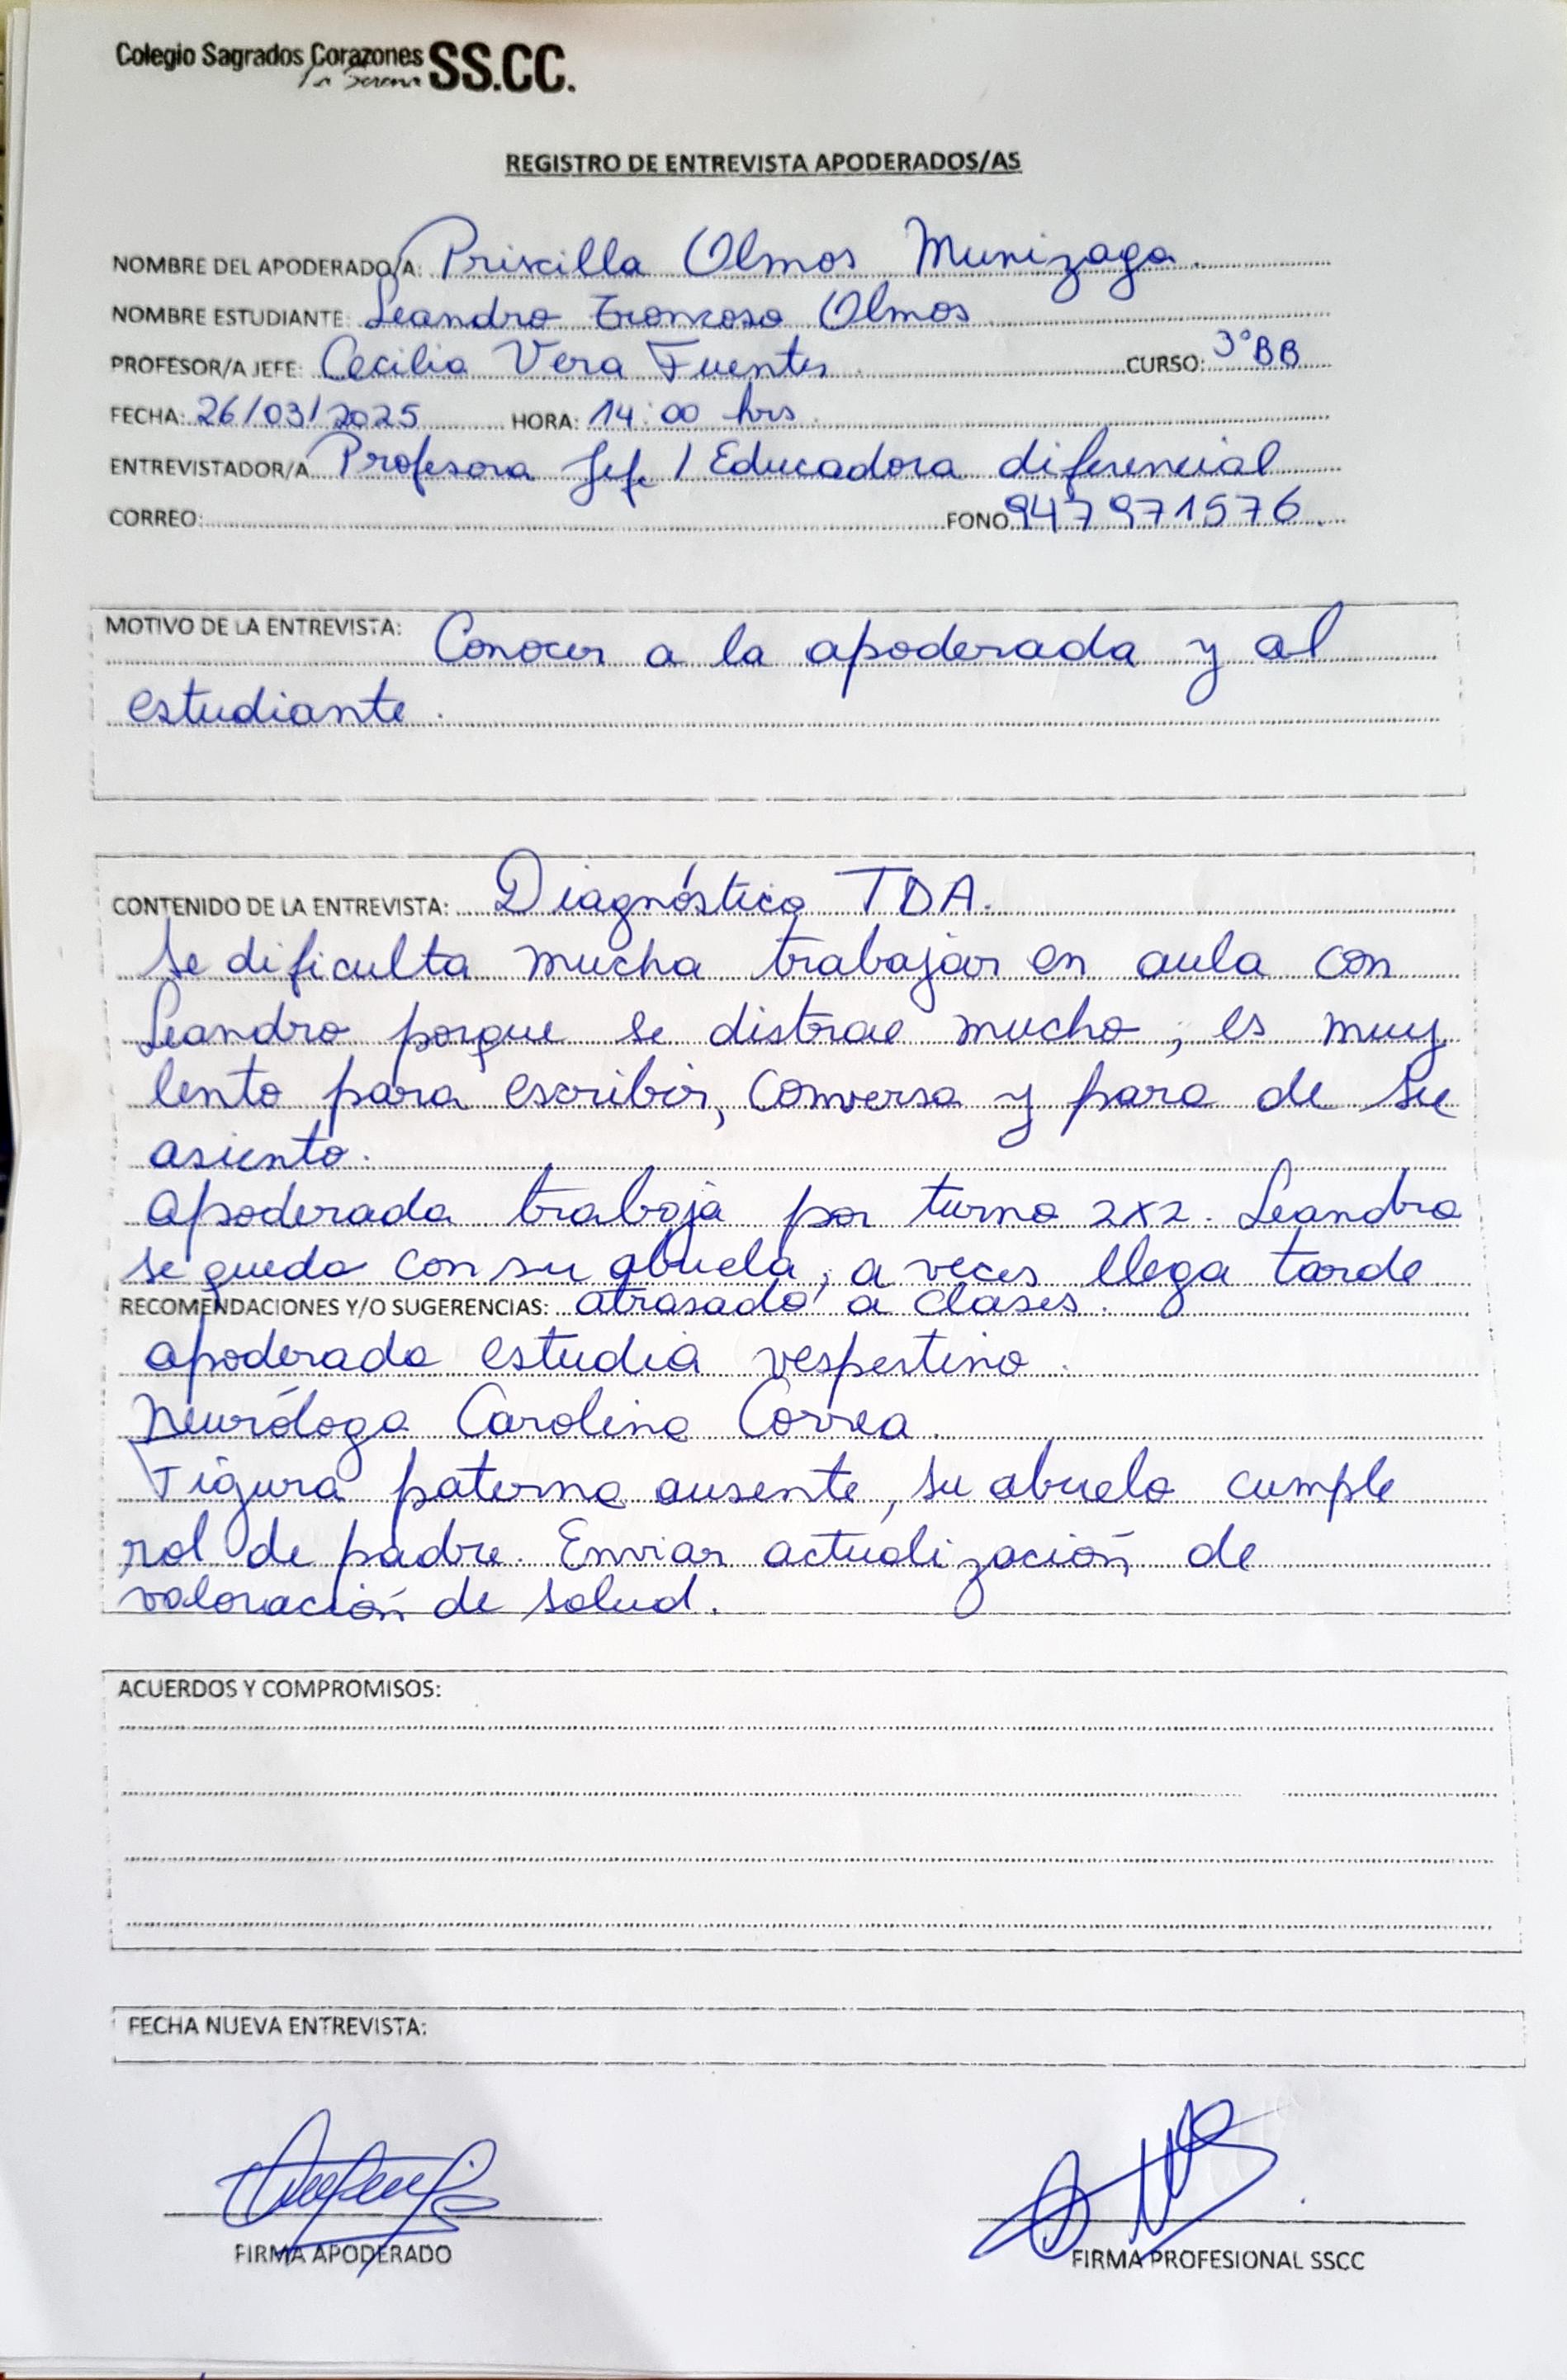 Colegio Sagrados Corazones SS.CC.
La Serena
REGISTRO DE ENTREVISTA APODERADOS/AS
NOMBRE DEL APODERADO/A: Priscilla Olmos Munizaga.
NOMBRE ESTUDIANTE: Leandro Troncoso Olmos
PROFESOR/A JEFE: Cecilia Vera Fuentes CURSO: 3°BB
FECHA: 26/03/2025 HORA: 14:00 hrs.
ENTREVISTADOR/A Profesora Jefe / Educadora diferencial
CORREO: FONO 947971576.
MOTIVO DE LA ENTREVISTA: Conocer a la apoderada y al
estudiante.
CONTENIDO DE LA ENTREVISTA: Diagnóstico TDA.
Se dificulta mucha trabajar en aula con
Leandro porque se distrae mucho, es muy
lento para escribir, conversa y para de su
asiento.
Apoderada trabaja por turno 2x2. Leandro
se queda con su abuela, a veces llega tarde
RECOMENDACIONES Y/O SUGERENCIAS: atrasado a clases.
apoderada estudia vespertino.
Neuróloga Carolina Correa.
Figura paterna ausente, su abuelo cumple
rol de padre. Enviar actualización de
valoración de salud.
ACUERDOS Y COMPROMISOS:
FECHA NUEVA ENTREVISTA:
FIRMA APODERADO FIRMA PROFESIONAL SSCC